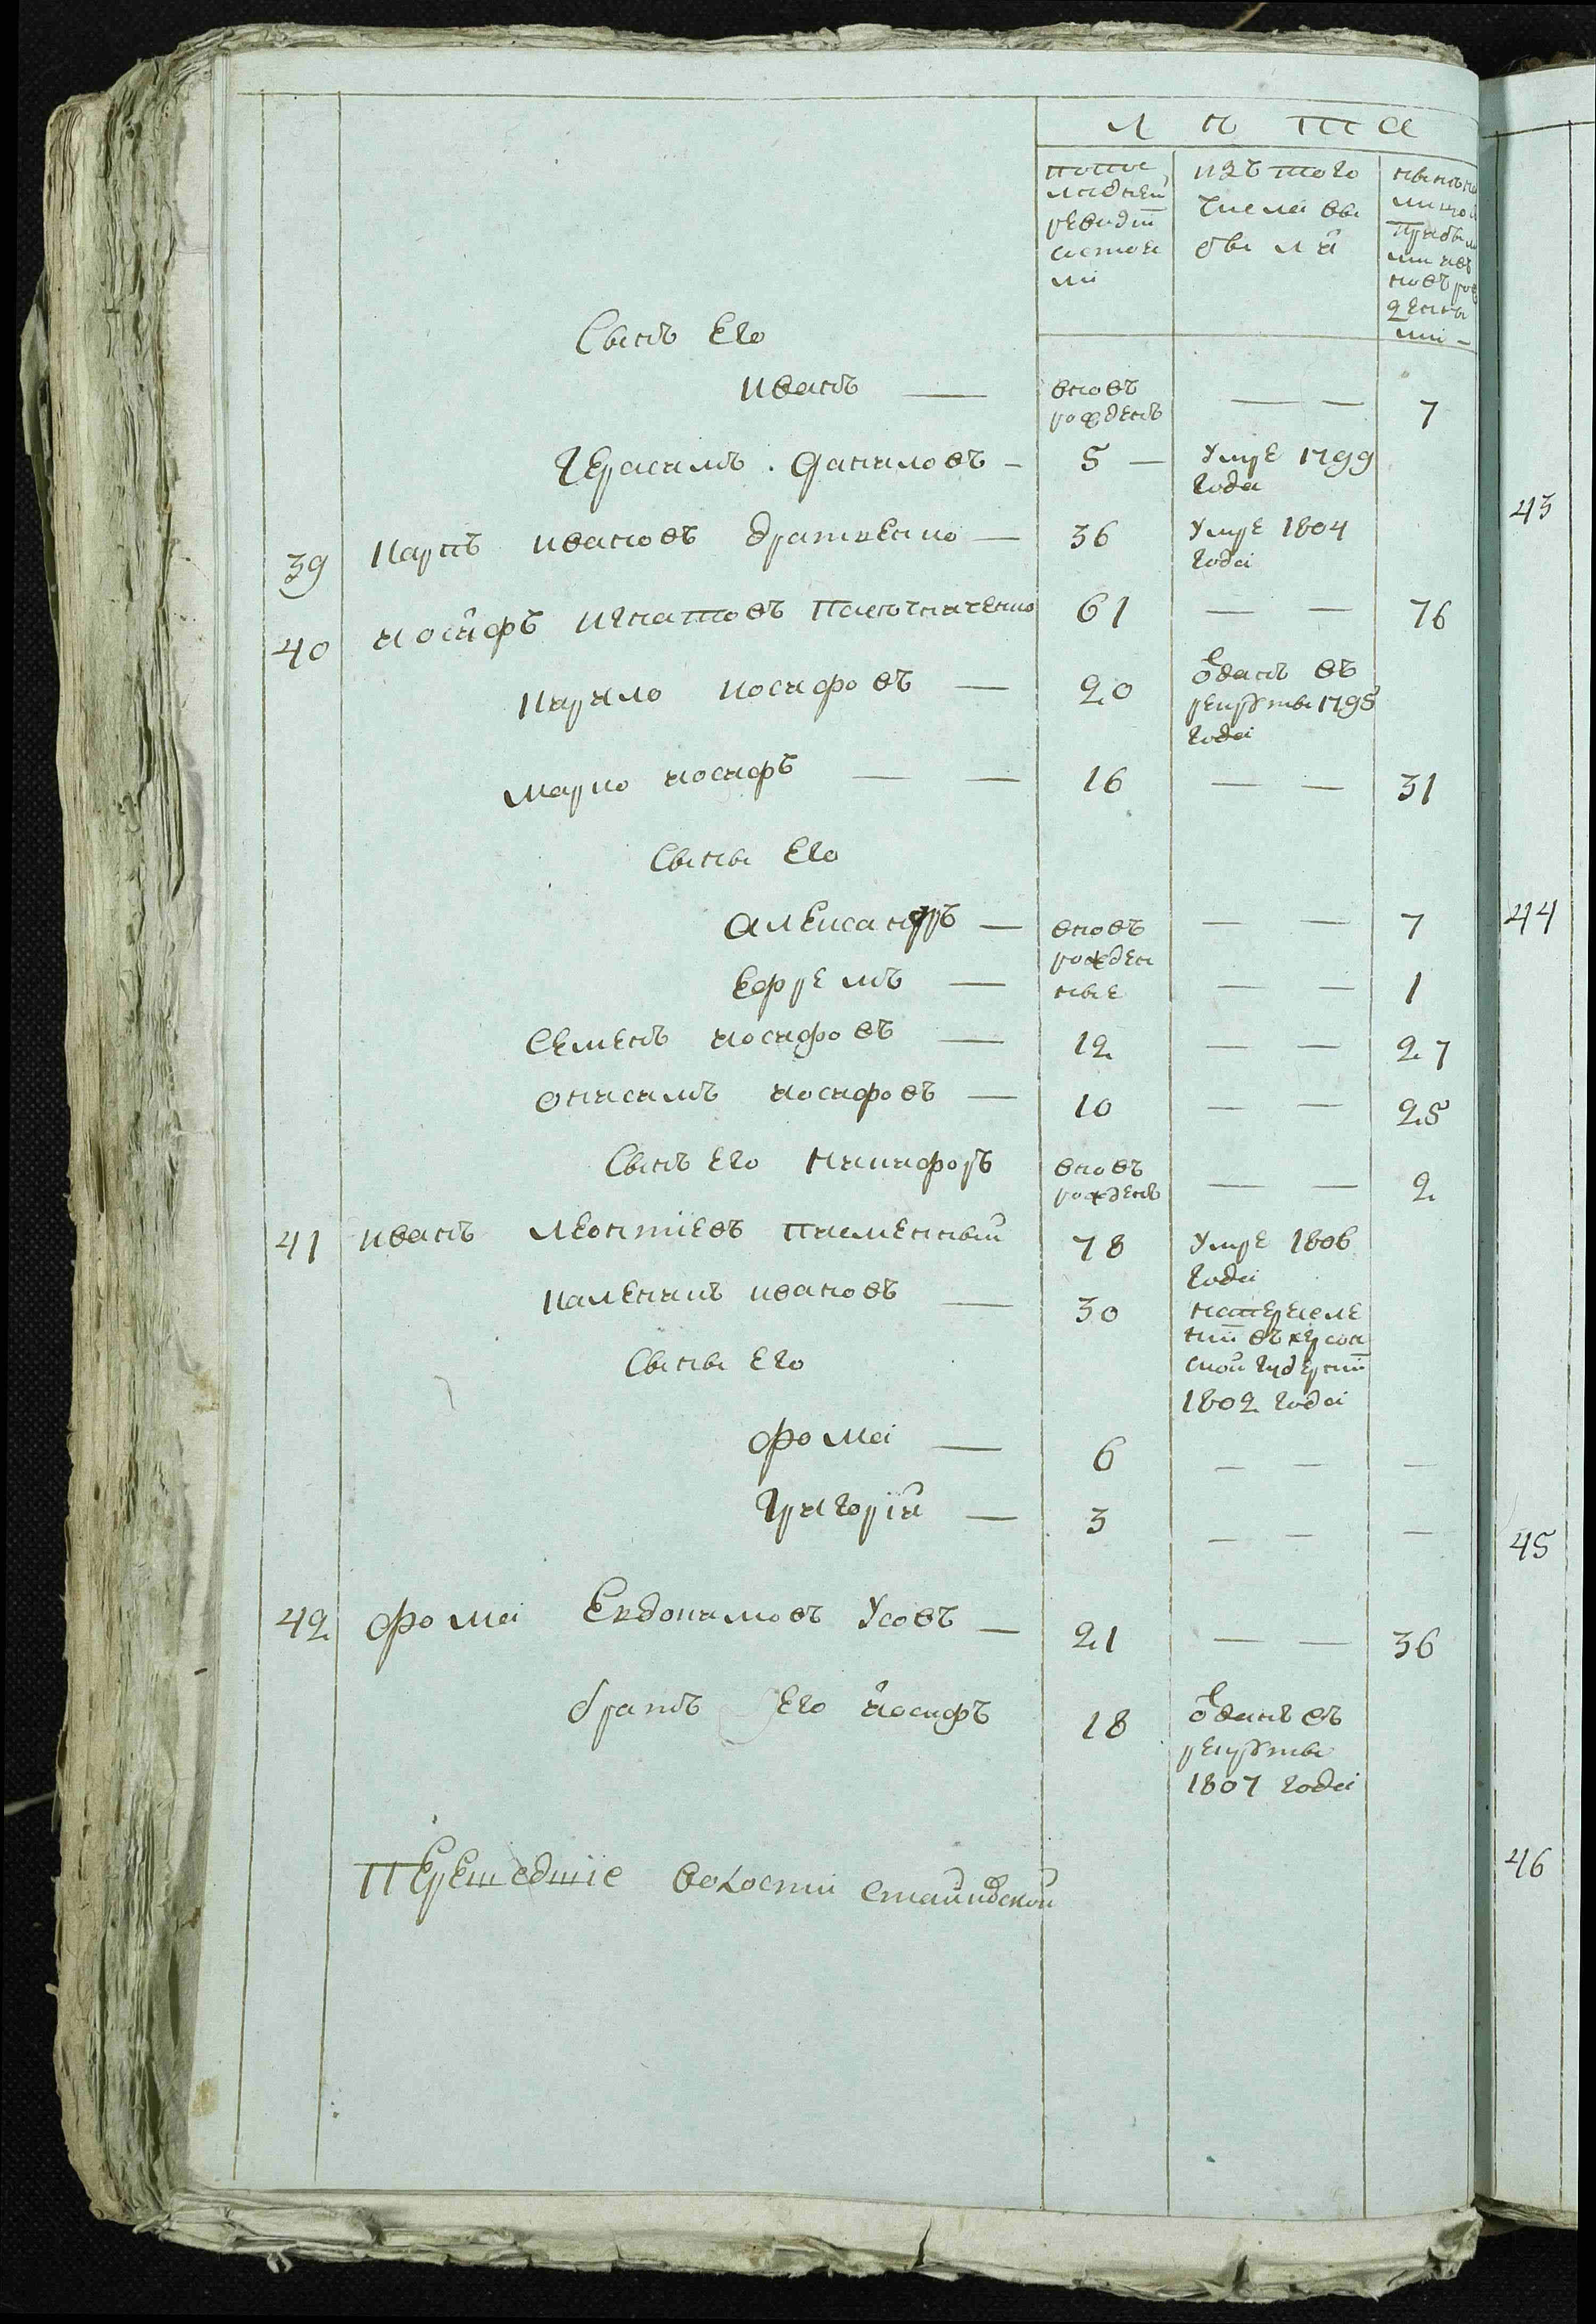 л ѣ т а
попос
лѣдней
ревизіи
состоя
ли
изъ того
числа вы
была
Сынъ Его
иванъ — вновь рожденъ — — 7
Герасимъ Даниловъ — 5 — умре 1799
года
39 Карпъ ивановъ братченко — 36 умре 1804
года
40 иосифъ игнатовъ 61 — — 76
Кирило иосифовъ — 20 отданъ въ
рекруты 1795
года
марко иосифъ — — 16 — — 31
Сыны Его
александръ — вновь — — 7
рожден
Ефремъ — ные — — 1
Семенъ иосифовъ — 12 — — 27
онисимъ иосифовъ — 10 — — 25
Сынъ Его никифоръ вновь рожденъ — — 2
41 иванъ леонтіевъ писменный 78 умре 1806
года
Калиникъ ивановъ — 30 на переселе
ніи въ херсон
Сыны Его ской губерніи
1802 года
фома — 6 — — —
Григорій — 3 — — —
42 фома Евдокимовъ Усовъ — 21 — — 36
братъ Его иосифъ 18 отданъ въ
рекруты
1807 года
Перешедшіе волости
43
44
45
46